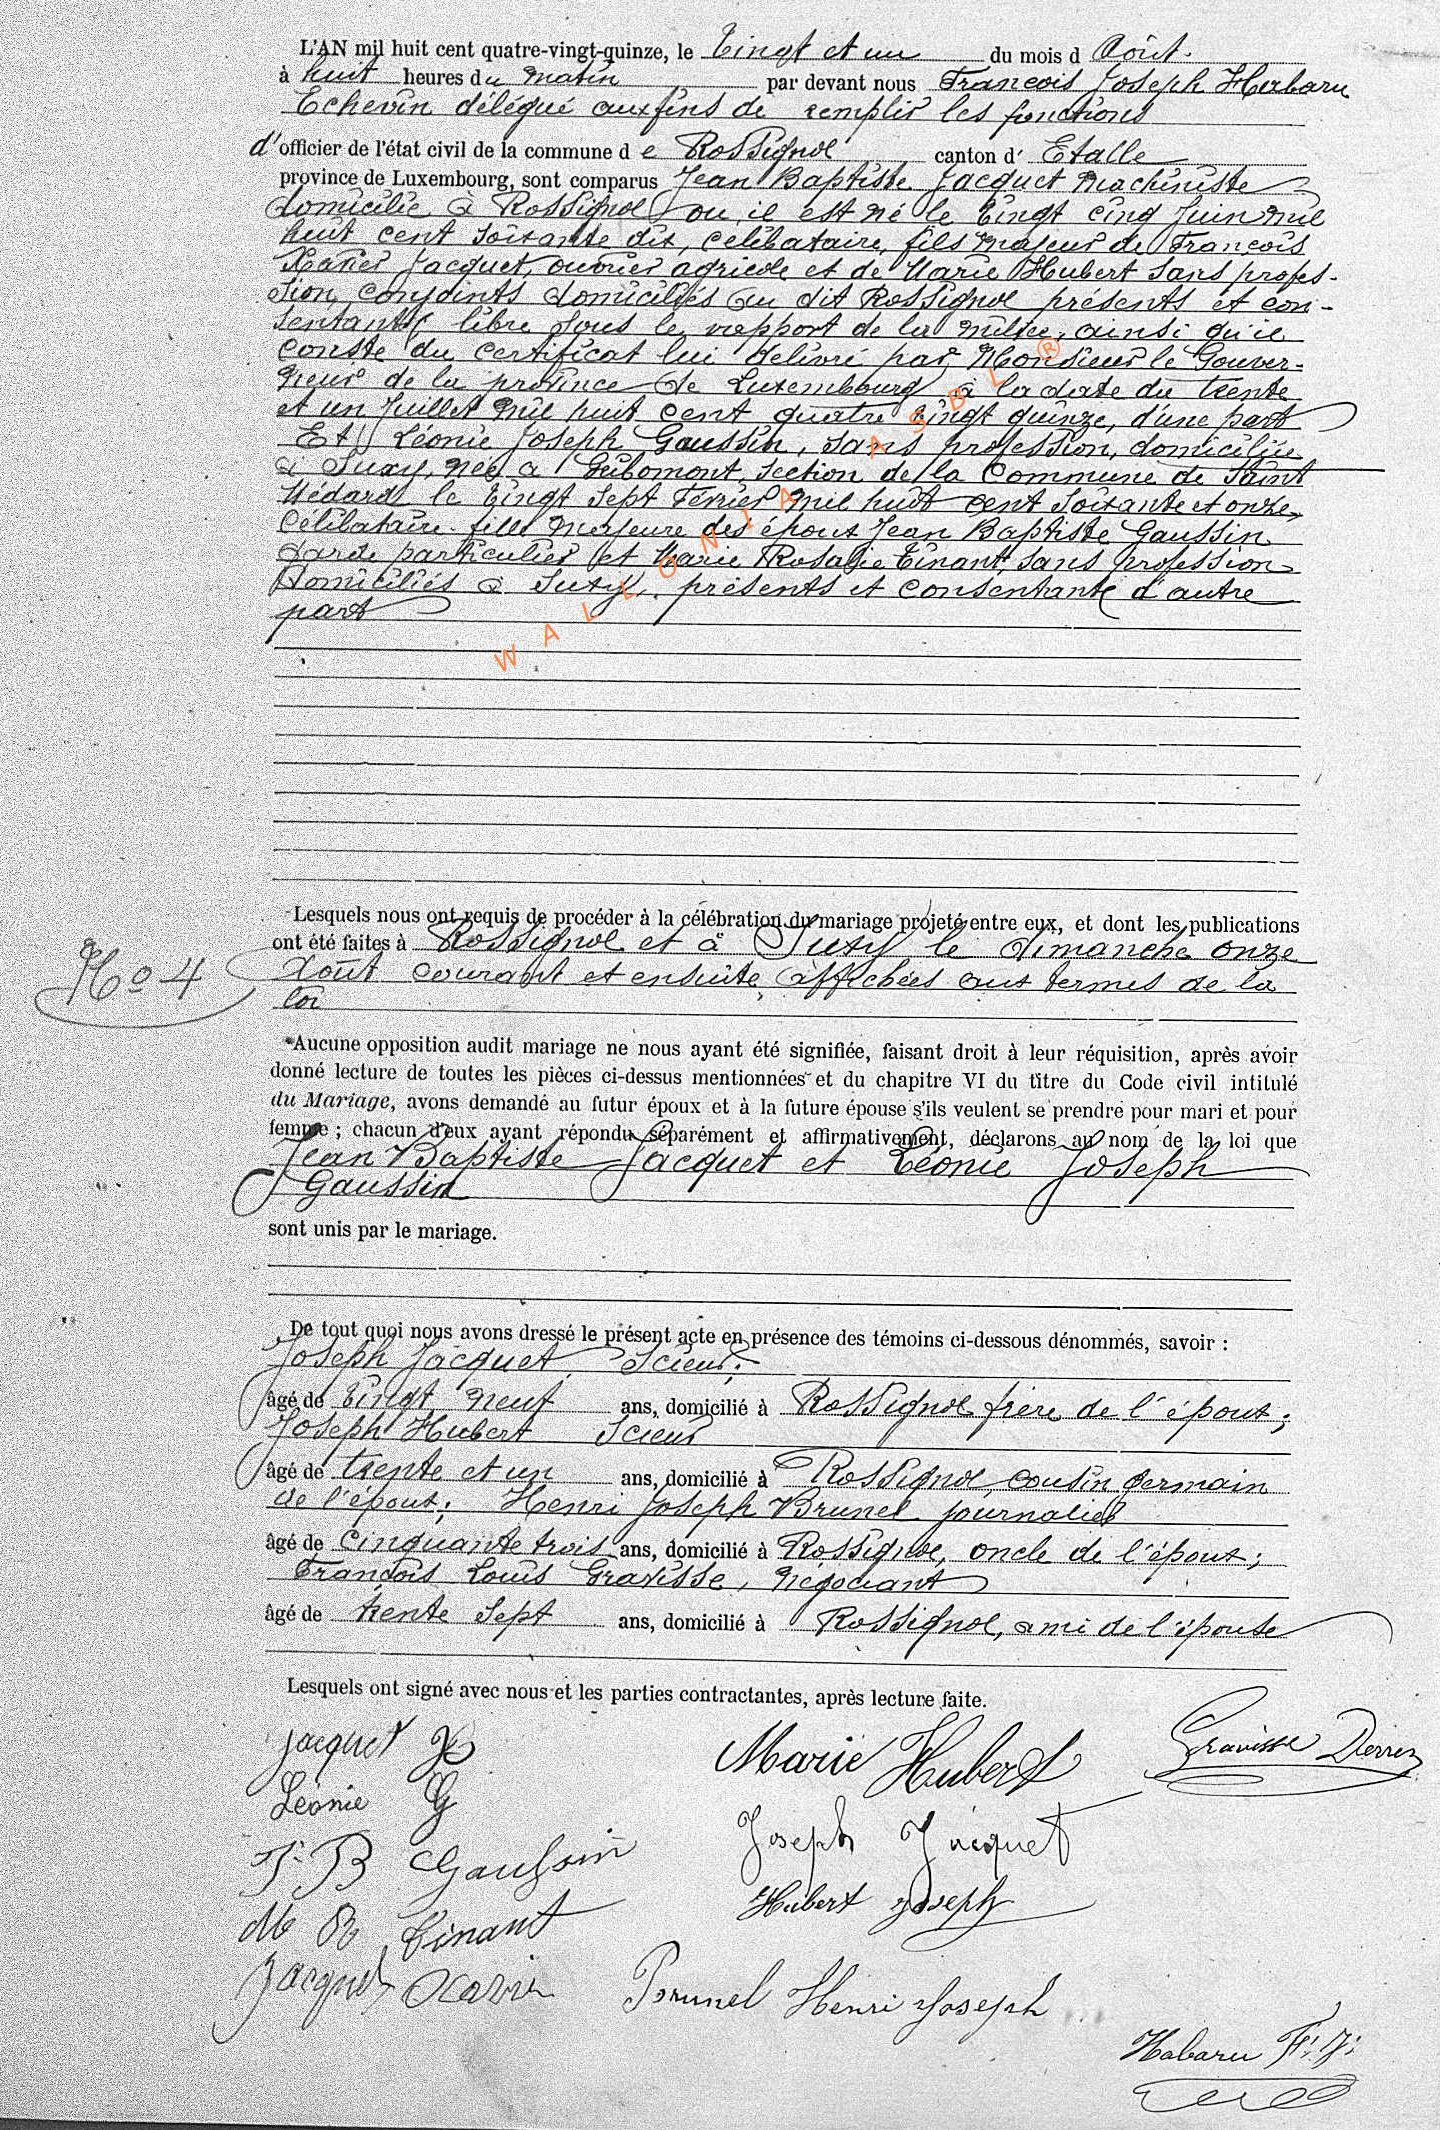 L'AN mil huit cent quatre-vingt-quinze, le Vingt et un du mois d Août.
à huit heures du matin par devant nous Francois Joseph Habaru
Echevin délégué aux fins de remplir les fonctions
d'officier de l'état civil de la commune de Rossignol canton d' Etalle
province de Luxembourg, sont comparus Jean Baptiste Jacquet Machiniste
domicilié à Rossignol ou il est né le Vingt cinq Juin mil
huit cent soixante dix, célibataire, fils majeur de François
Xavier Jacquet, ouvrier agricole et de Marie Hubert sans profes-
sion, conjoints domiciliés au dit Rossignol présents et con-
sentants, libre sous le rapport de la milice, ainsi qu'il
conste du certificat lui délivré par Monsieur le Gouver-
neur de la province de Luxembourg à la date du trente
et un Juillet mil huit cent quatre Vingt quinze, d'une part
Et Léonie Joseph Gaussin, sans profession, domiciliée
à Suxy, née à Gribomont, section de la Commune de Saint
Médard le Vingt sept Février mil huit cent soixante et onze,
Célibataire fille majeure des époux Jean Baptiste Gaussin
Garde particulier et Marie Rosalie Tinant, sans profession
domiciliés à Suxy, présents et consentants d'autre
part
WALLONIA ASBL ®
Lesquels nous ont requis de procéder à la célébration du mariage projeté entre eux, et dont les publications
ont été faites à Rossignol et à Suxy le dimanche onze
N° 4 Août courant et ensuite affichées aux termes de la
loi
Aucune opposition audit mariage ne nous ayant été signifiée, faisant droit à leur réquisition, après avoir
donné lecture de toutes les pièces ci-dessus mentionnées et du chapitre VI du titre du Code civil intitulé
du Mariage, avons demandé au futur époux et à la future épouse s'ils veulent se prendre pour mari et pour
femme ; chacun d'eux ayant répondu séparément et affirmativement, déclarons au nom de la loi que
Jean Baptiste Jacquet et Léonie Joseph
Gaussin
sont unis par le mariage.
De tout quoi nous avons dressé le présent acte en présence des témoins ci-dessous dénommés, savoir :
Joseph Jacquet, Scieur,
âgé de Vingt neuf ans, domicilié à Rossignol frère de l'époux;
Joseph Hubert Scieur
âgé de trente et un ans, domicilié à Rossignol, cousin germain
de l'époux; Henri Joseph Brunel journalier
âgé de cinquante trois ans, domicilié à Rossignol, oncle de l'époux;
François Louis Gravisse, négociant
âgé de trente sept ans, domicilié à Rossignol, ami de l'épouse
Lesquels ont signé avec nous et les parties contractantes, après lecture faite.
Jacquet JB Marie Hubert Gravisse Pierrez
Léonie G
Joseph Jacquet
J. B Gaussin
Hubert Joseph
M R Tinant
Jacquet Xavier Brunel Henri Joseph
Habaru F. J.